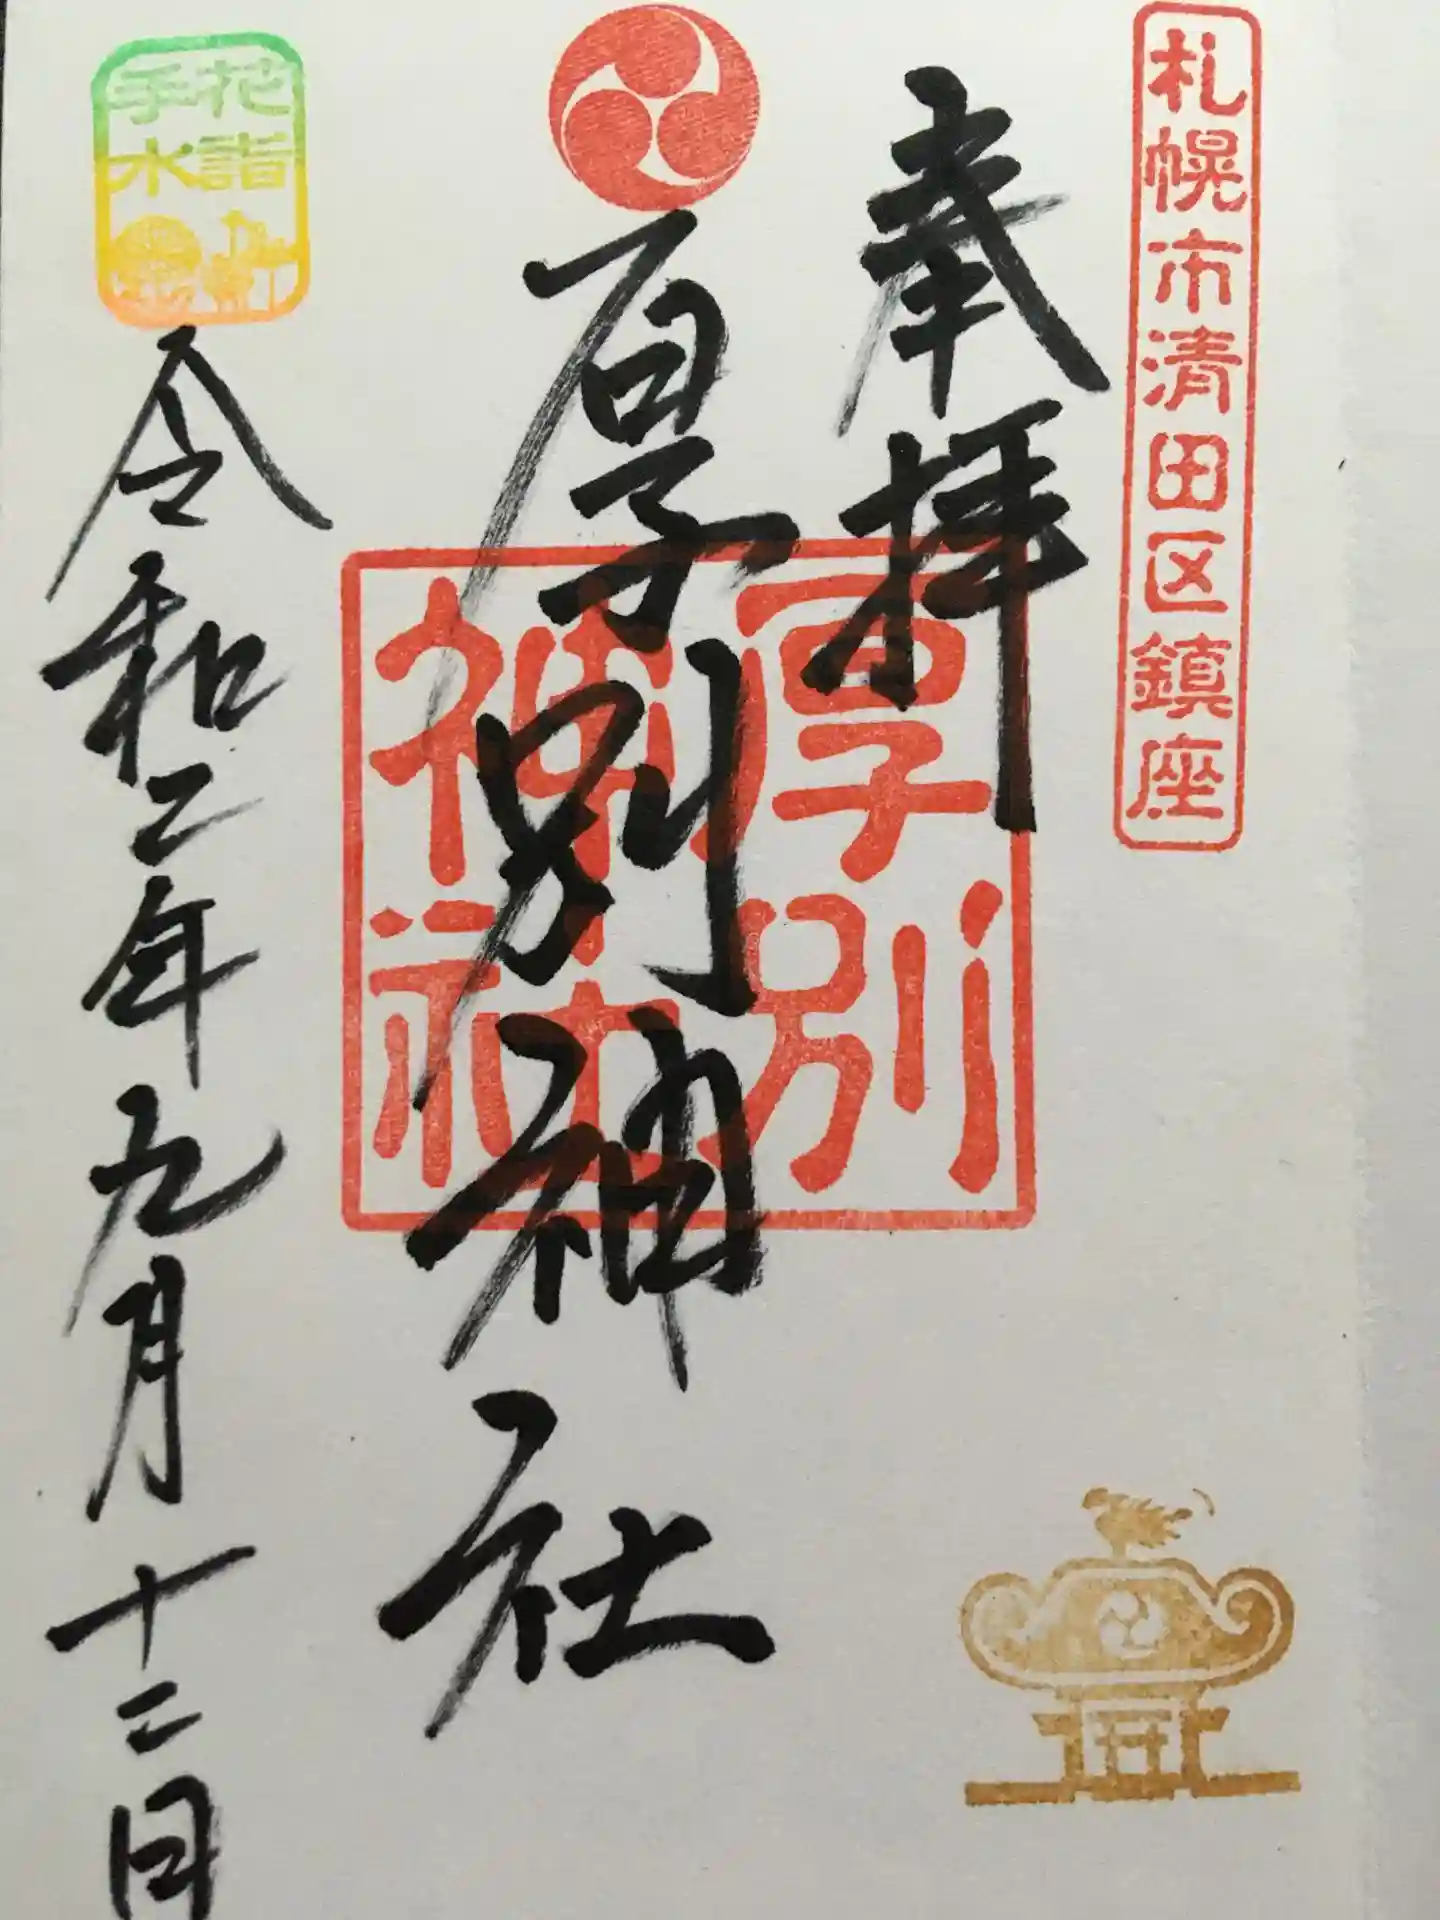 札幌市清田区鎮座
奉拝
厚別神社
厚別
神社
花詣
手水
令和二年九月十二日